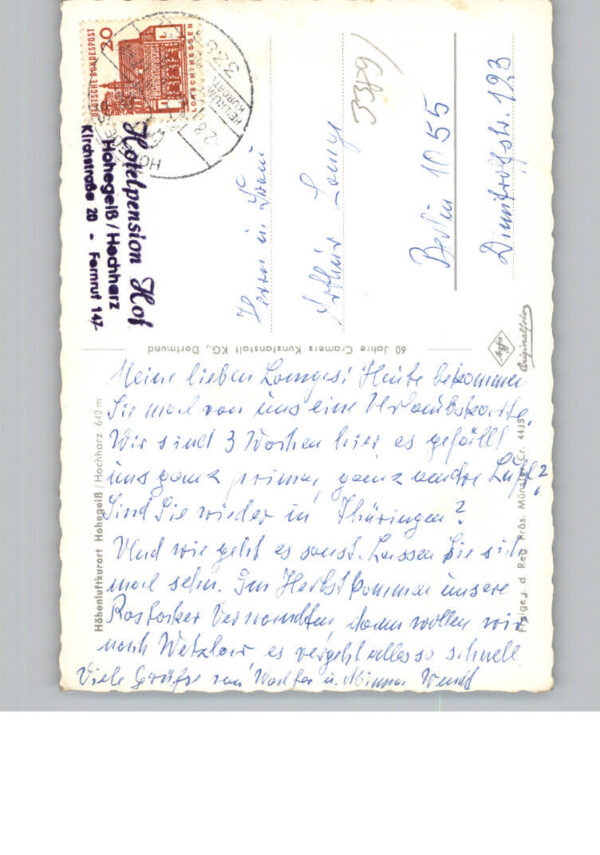 DEUTSCHE BUNDESPOST
20
LORSCH/HESSEN
HEILKLIM.
KURORT
Hotelpension Hof
Hohegeiß/Hochharz
Kirchstraße 20 - Fernruf 147
3359/
Herrn u. Frau
Arthur Lomge
Berlin 1055
Dimitroffstr. 123
60 Jahre Cramers Kunstanstalt KG., Dortmund
Originalfoto
Höhenluftkurort Hohegeiß/Hochharz 642 m
Freigeg. d. Reg. Präs. Münster Cr. 4435
Meine lieben Lomges! Heute bekommen
Sie mal von uns eine Urlaubskarte.
Wir sind 3 Wochen hier, es gefällt
uns ganz prima, ganz andre Luft?
Sind Sie wieder in Thüringen?
Und wie geht es sonst. Lassen Sie sich
mal sehn. Im Herbst kommen unsere
Rostocker Verwandten, dann wollen wir
nach Wetzlar, es vergeht alles so schnell
Viele Grüße von Walter u.